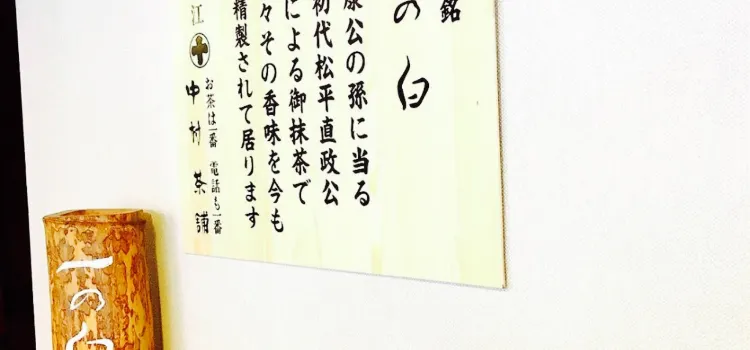 銘
の白
康公の孫に当る
初代松平直政公
による御抹茶で
々その香味を今も
精製されて居ります
お茶は一番 電話も一番
江 中村茶舗
一の白